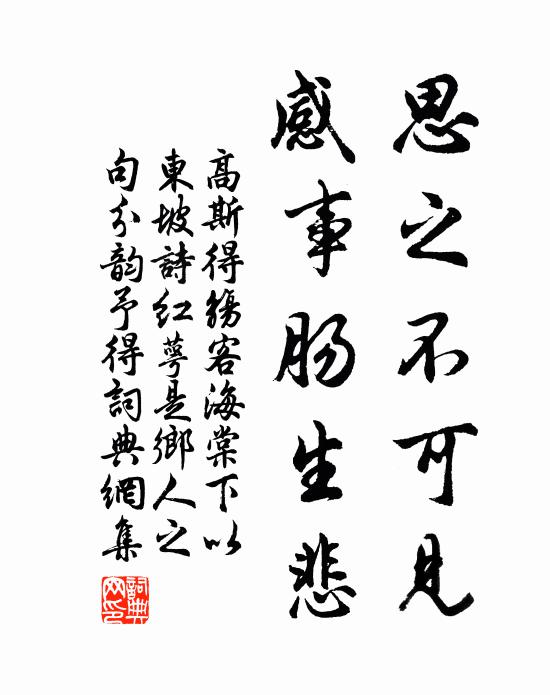 思之不可見
感事肠生悲
高斯得觴客海棠下以
東坡詩紅萼是鄉人之
句分韵予得詞典網集